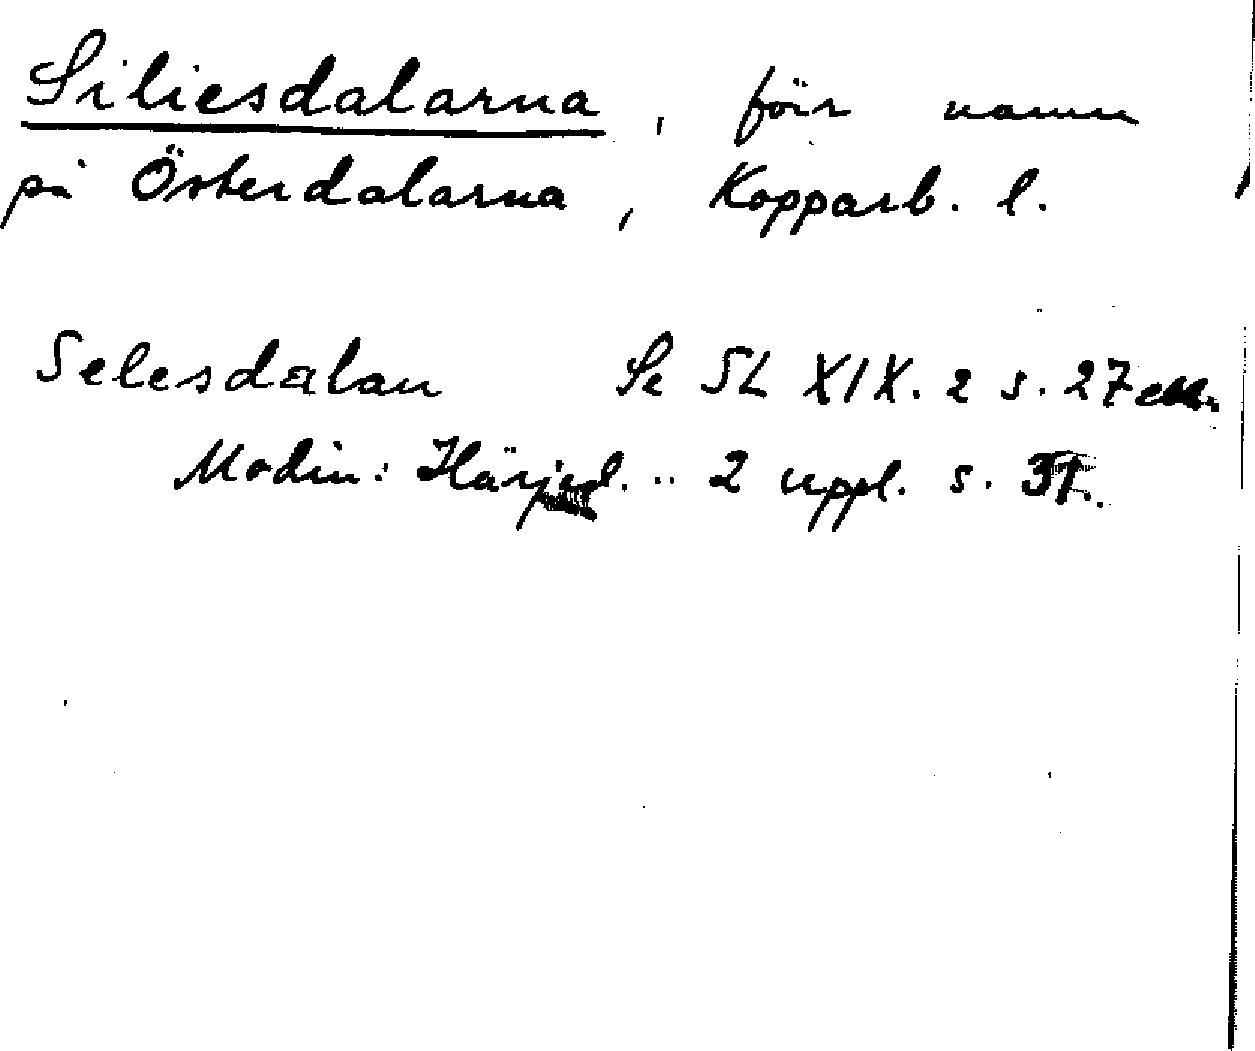 Siliesdalarna, förr namn
på Österdalarna, Kopparb. l.
Selesdalan Se SL XIX. 2 s. 27
Modin: Härjed. .. 2 uppl. s. 37.